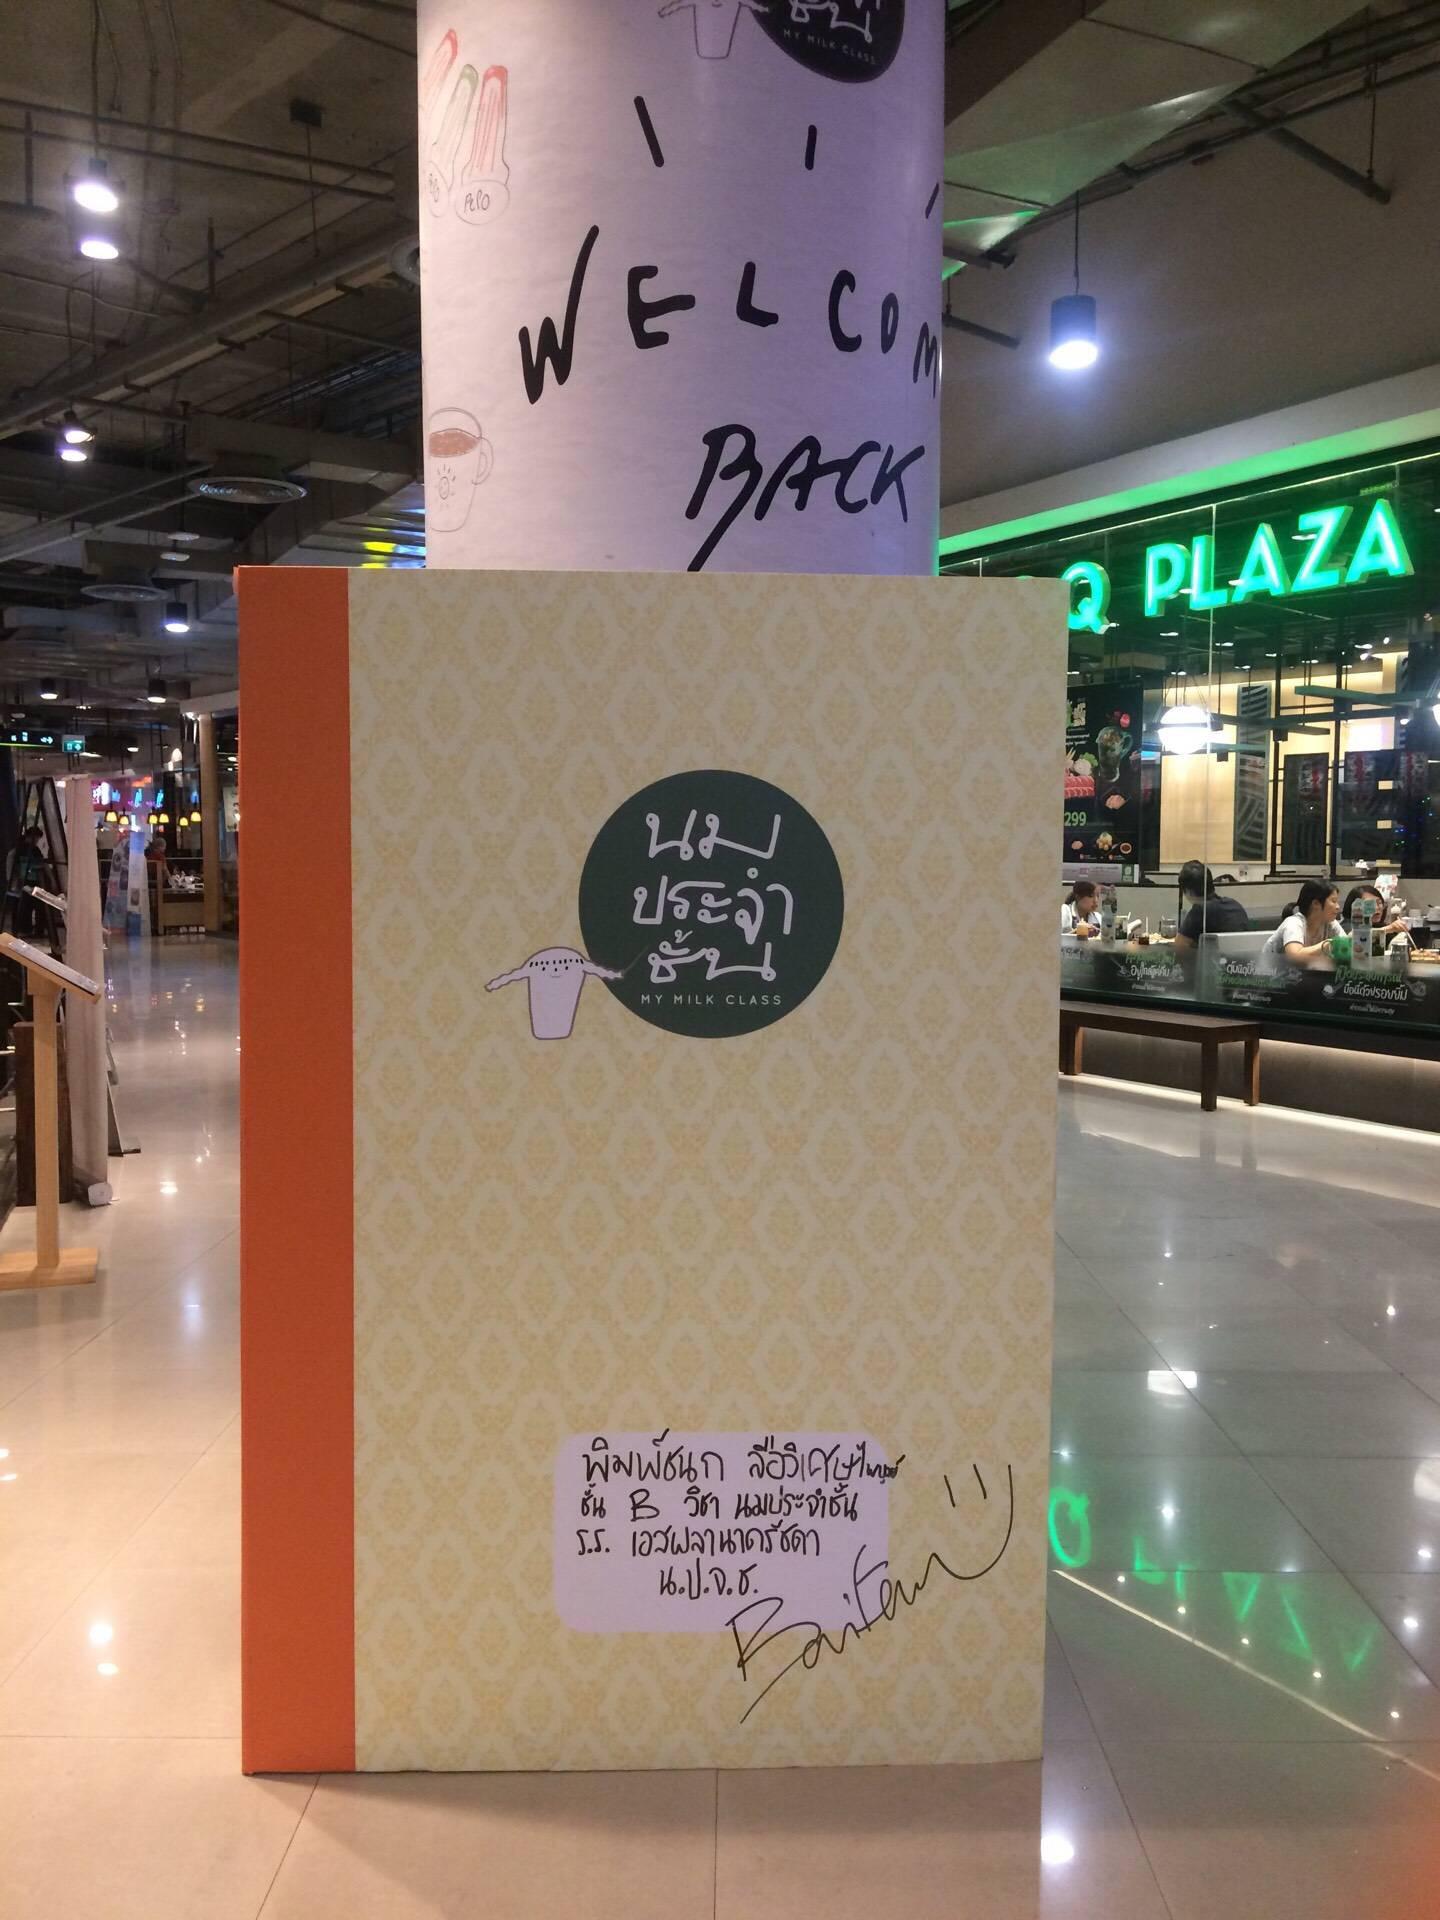 MY MILK CLASS
PePO
WELCOM
BACK
Q PLAZA
299
นม
ประจำ
ชั้น
MY MILK CLASS
พิมพ์ชนก ลือวิเศษไพบูลย์
ชั้น B วิชา นมประจำชั้น
ร.ร. เอสพลานาดรัชดา
น.ป.จ.ช.
Baifern